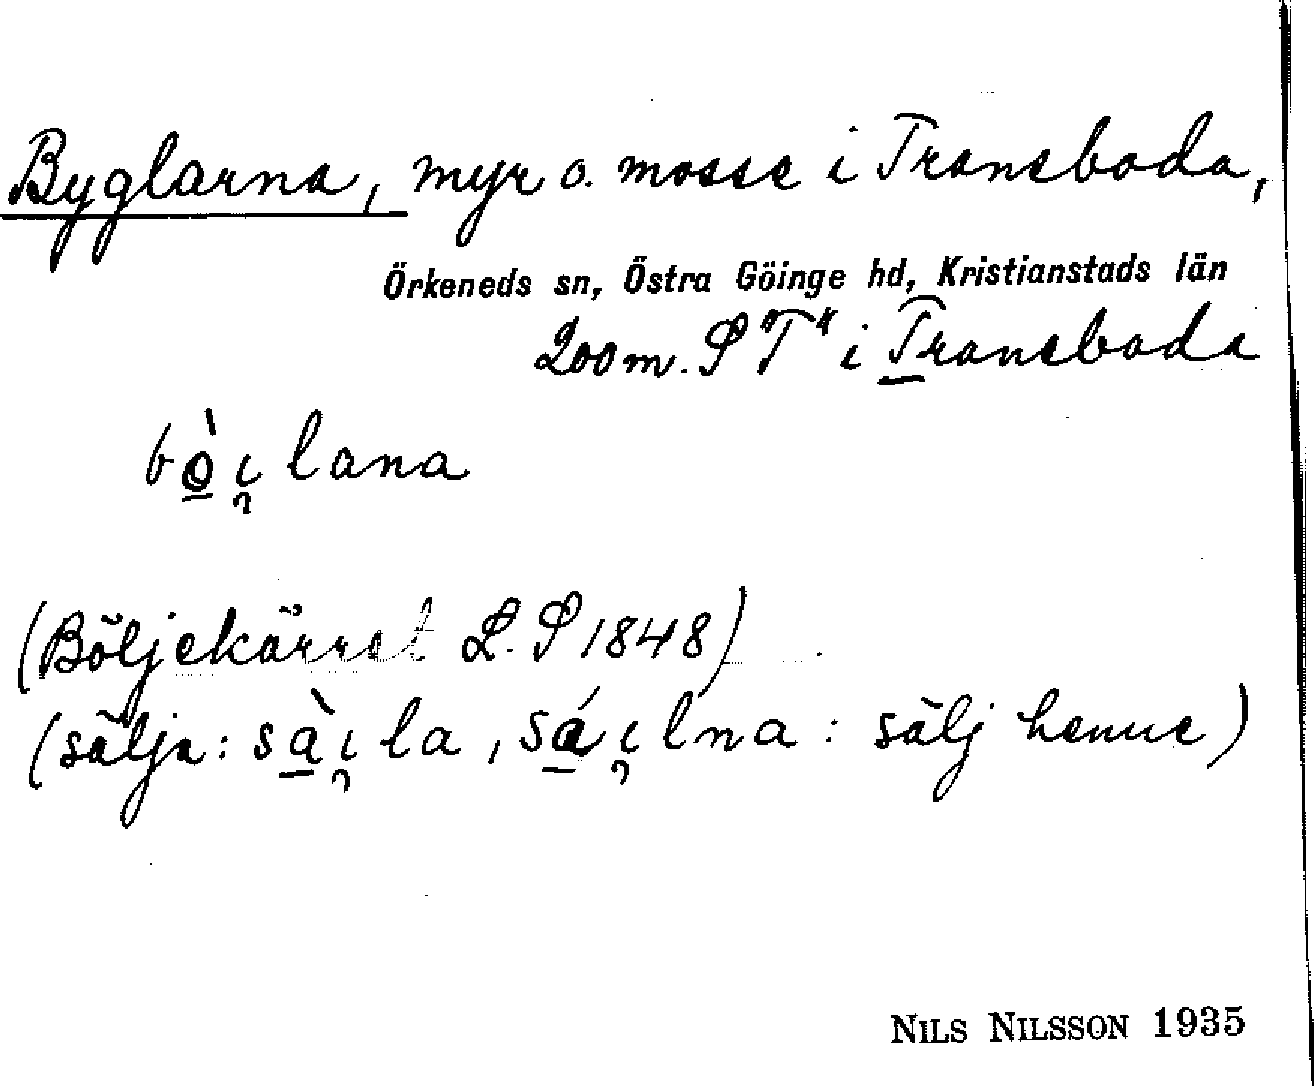 Byglarna, myr o. mosse i Transboda,
Örkeneds sn, Östra Göinge hd, Kristianstads län
200 m. S "T" i Transboda
bò̲i̯lana
(Böljekärret L. S 1848)
(sälja: sà̲i̯la, sá̲i̯lna: sälj henne)
NILS NILSSON 1935